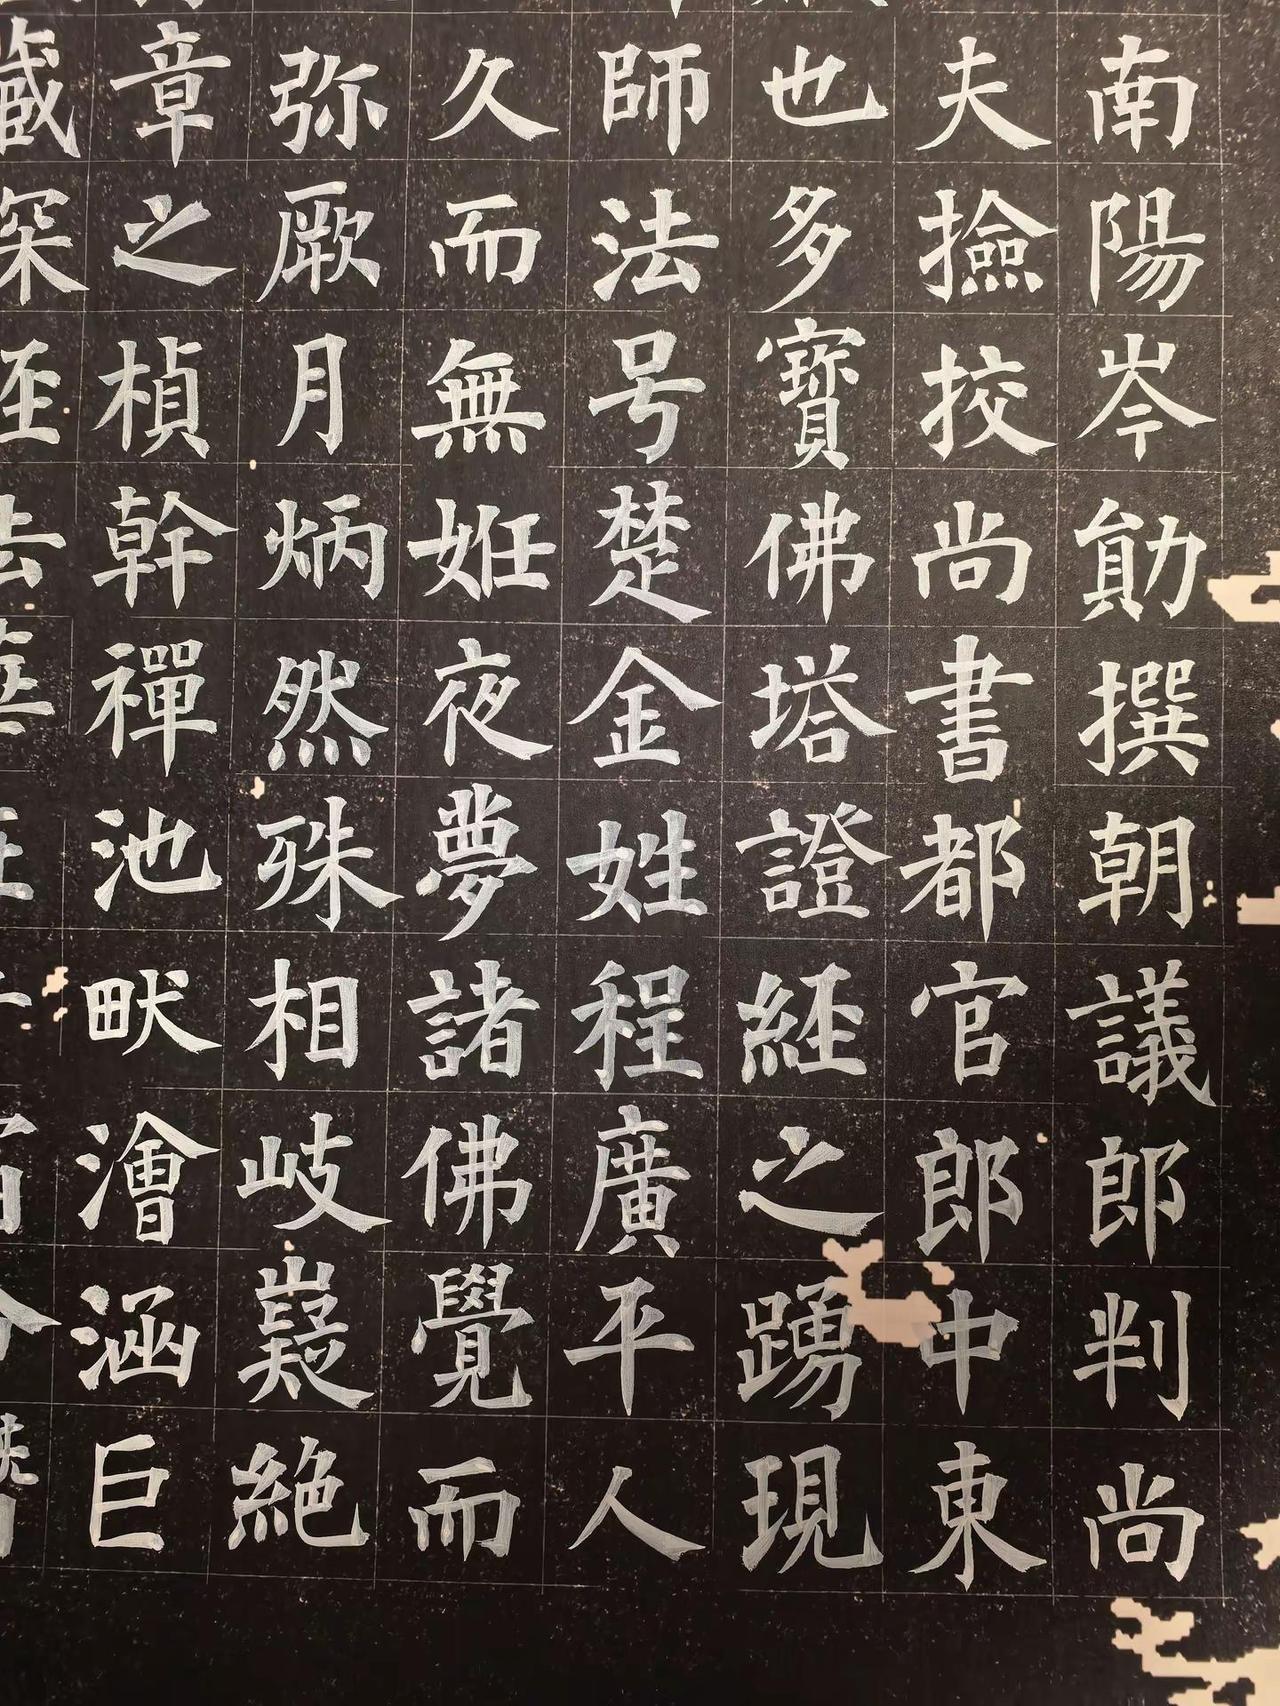 南陽岑勛撰朝議郎判尚
夫撿挍尚書都官郎中東
也多寶佛塔證經之踴現
師法号楚金姓程廣平人
久而無姙夜夢諸佛覺而
弥厥月炳然殊相岐嶷絶
章之楨幹禪池畎澮涵巨